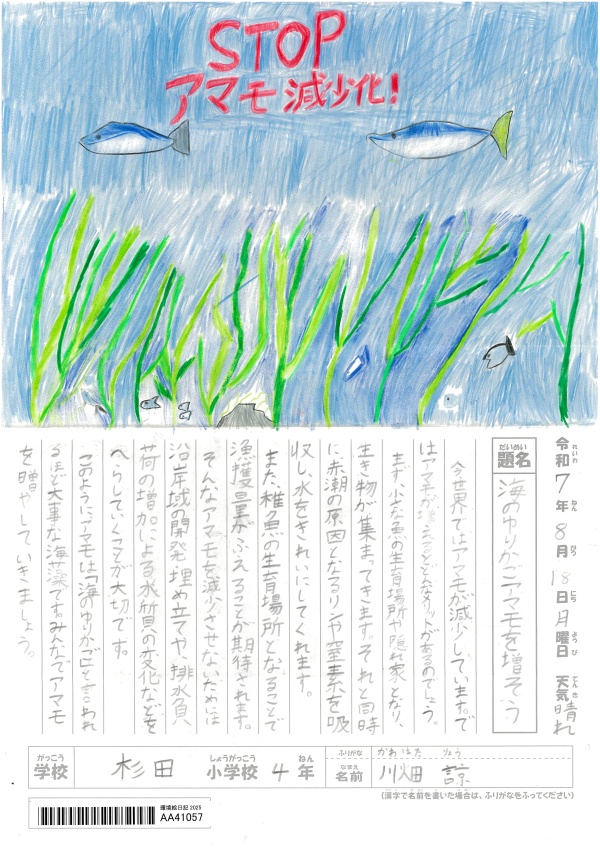 STOP
アマモ減少化!
令和7年8月18日月曜日 天気晴れ
れいわ ねん がつ にち よう び てん き
題名 海のゆりかごアマモを増そう
だいめい
今世界ではアマモが減少しています。で
はアマモが増えるとどんなメリットがあるのでしょう。
まず、小さな魚の生育場所や隠れ家となり、
生き物が集まってきます。それと同時
に赤潮の原因となるリンや窒素を吸
収し、水をきれいにしてくれます。
また、稚魚の生育場所となることで
漁獲量がふえることが期待されます。
そんなアマモを減少させないためには
沿岸域の開発・埋め立てや、排水負
荷の増加による水質の変化などを
へらしていくことが大切です。
このようにアマモは「海のゆりかご」と言われ
るほど大事な海藻です。みんなでアマモ
を増やしていきましょう。
がっこう しょうがっこう ねん
学校 杉田 小学校 4年
ふりがな かわはた りょう
なまえ
名前 川畑 諒
(漢字で名前を書いた場合は、ふりがなをふってください)
環境絵日記 2025
AA41057